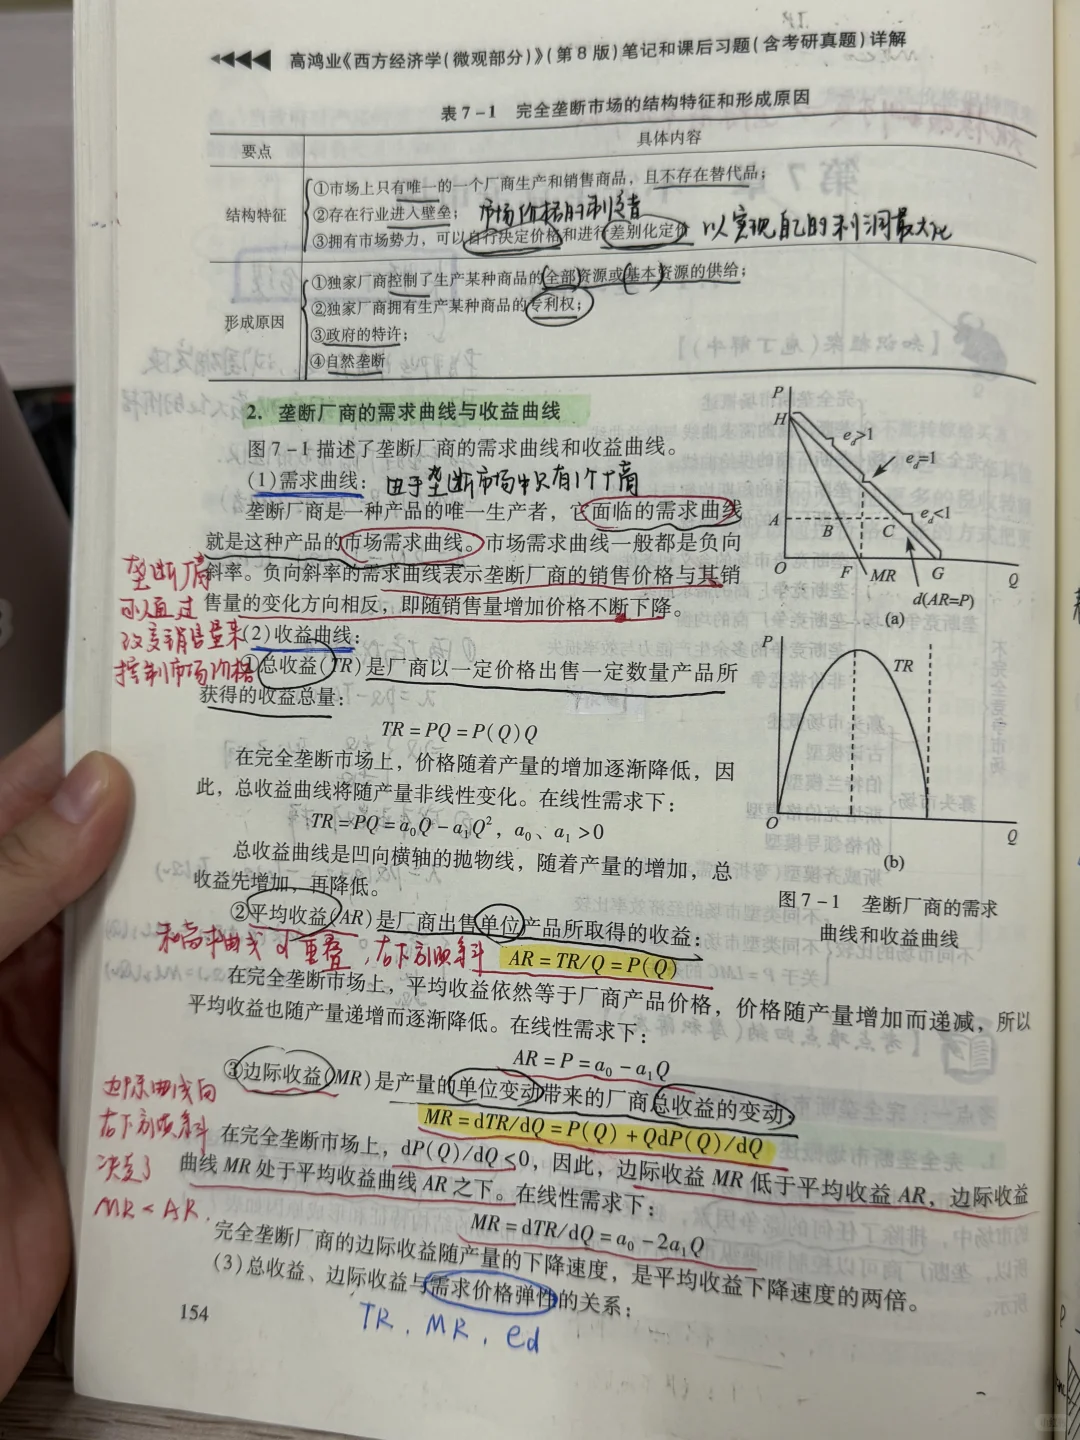 高鸿业《西方经济学(微观部分)》(第8版)笔记和课后习题(含考研真题)详解
表7-1 完全垄断市场的结构特征和形成原因
要点
具体内容
结构特征
①市场上只有唯一的一个厂商生产和销售商品，且不存在替代品；
②存在行业进入壁垒； 市场价格的制定者
③拥有市场势力，可以自行决定价格和进行差别化定价 以实现自己的利润最大化
形成原因
①独家厂商控制了生产某种商品的全部资源或基本资源的供给；
②独家厂商拥有生产某种商品的专利权；
③政府的特许；
④自然垄断
2. 垄断厂商的需求曲线与收益曲线
图7-1描述了垄断厂商的需求曲线和收益曲线。
(1)需求曲线： 由于垄断市场中只有1个厂商
垄断厂商是一种产品的唯一生产者，它面临的需求曲线
就是这种产品的市场需求曲线。市场需求曲线一般都是负向
斜率。负向斜率的需求曲线表示垄断厂商的销售价格与其销
售量的变化方向相反，即随销售量增加价格不断下降。
垄断厂商
可以通过
改变销售量来
控制市场价格
(2)收益曲线：
①总收益(TR)是厂商以一定价格出售一定数量产品所
获得的收益总量：
TR=PQ=P(Q)Q
在完全垄断市场上，价格随着产量的增加逐渐降低，因
此，总收益曲线将随产量非线性变化。在线性需求下：
TR=PQ=a₀Q-a₁Q²，a₀、a₁>0
总收益曲线是凹向横轴的抛物线，随着产量的增加，总
收益先增加，再降低。
P
H
e_d>1
e_d=1
e_d<1
A
B
C
O
F
MR
G
Q
d(AR=P)
(a)
P
TR
O
Q
(b)
图7-1 垄断厂商的需求
曲线和收益曲线
②平均收益(AR)是厂商出售单位产品所取得的收益：
和需求曲线d重叠，右下方倾斜
AR=TR/Q=P(Q)
在完全垄断市场上，平均收益依然等于厂商产品价格，价格随产量增加而递减，所以
平均收益也随产量递增而逐渐降低。在线性需求下：
AR=P=a₀-a₁Q
③边际收益(MR)是产量的单位变动带来的厂商总收益的变动：
MR=dTR/dQ=P(Q)+QdP(Q)/dQ
边际曲线向
右下方倾斜
决定了
MR<AR.
在完全垄断市场上，dP(Q)/dQ<0，因此，边际收益MR低于平均收益AR，边际收益
曲线MR处于平均收益曲线AR之下。在线性需求下：
MR=dTR/dQ=a₀-2a₁Q
完全垄断厂商的边际收益随产量的下降速度，是平均收益下降速度的两倍。
(3)总收益、边际收益与需求价格弹性的关系：
TR. MR. ed
154